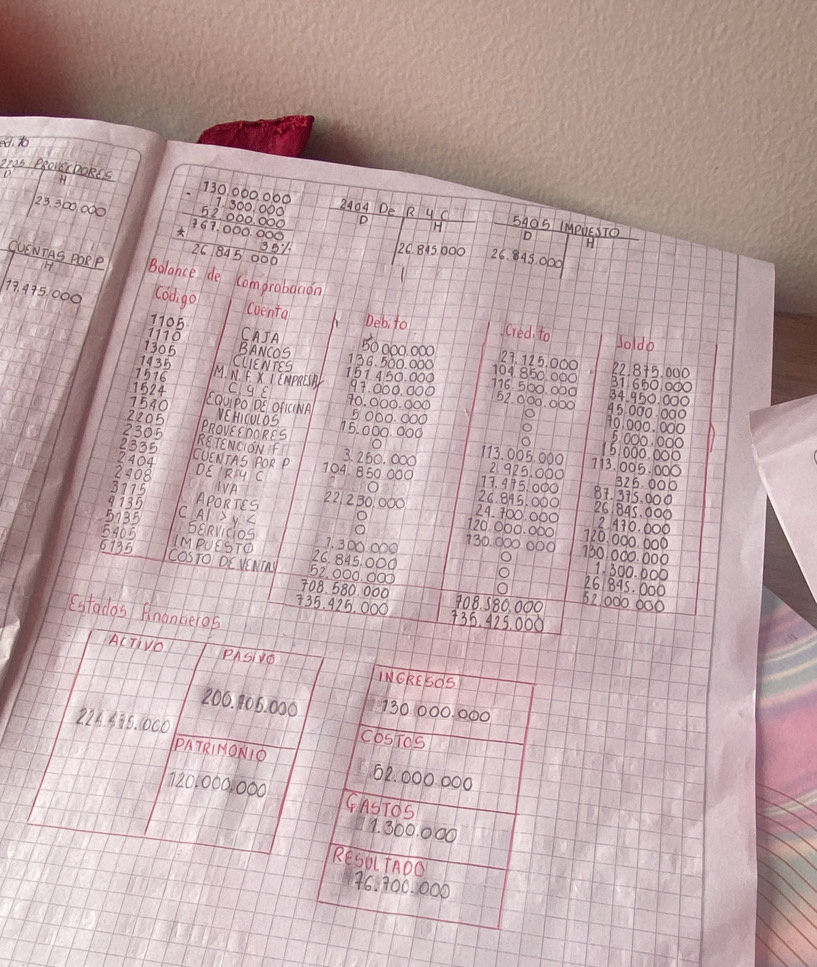 edito
2205 PROVEEDORES
D H
23.300.000
CUENTAS POR P
H
17.475.000
- 130.000.000
1.300.000
52.000.000
* 767.000.000
35%
26.845.000
2404 De R y C
D H
26.845.000
5405 IMPUESTO
D H
26.845.000
Balance de Comprobación
Código Cuenta Debito Credito Saldo
1105 CAJA 50.000.000 27.125.000 22.875.000
1110 BANCOS 136.500.000 104.850.000 31.650.000
1305 CLIENTES 151.450.000 116.500.000 34.950.000
1435 M.N.F.X.I EMPRESA 97.000.000 52.000.000 45.000.000
1516 C y E 70.000.000 0 70.000.000
1524 EQUIPO DE OFICINA 5.000.000 0 5.000.000
1540 VEHICULOS 15.000.000 0 15.000.000
2205 PROVEEDORES 0 113.005.000 113.005.000
2305 RETENCION F 3.250.000 2.925.000 325.000
2335 CUENTAS POR P 104.850.000 17.475.000 87.375.000
2404 DE IR Y C 0 26.845.000 26.845.000
2408 IVA 22.230.000 24.700.000 2.470.000
3115 APORTES 0 120.000.000 120.000.000
4135 0 130.000.000 130.000.000
5135 SERVICIOS 1.300.000 0 1.300.000
5405 IMPUESTO 26.845.000 0 26.845.000
6135 COSTO DE VENTAS 52.000.000 0 52.000.000
708.580.000 708.580.000
735.425.000 735.425.000
Estados financieros
ACTIVO PASIVO
200.705.000
PATRIMONIO
120.000.000
INGRESOS
130.000.000
COSTOS
52.000.000
GASTOS
1.300.000
RESULTADO
76.700.000